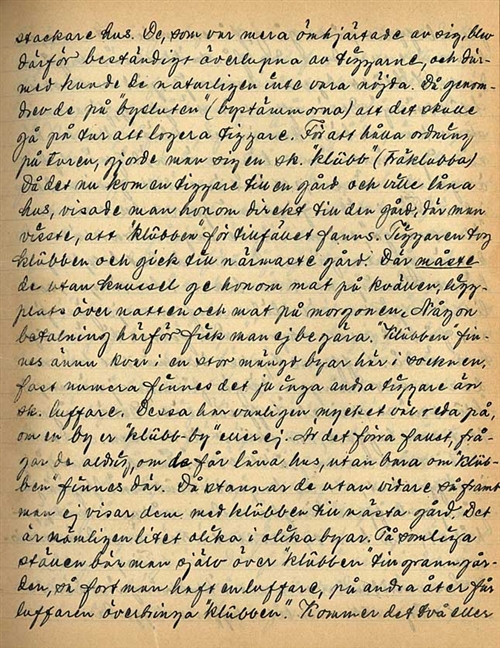 stackare hus. De, som var mera ömhjärtade av sig, blev
därför beständigt överlupna av tiggarne, och där-
med kunde de naturligen inte vara nöjda. Då genom-
drev de på "bysluten" (bystämmorna) att det skulle
gå på tur att logera tiggare. För att hålla ordning
på turen, gjorde man sig en sk. "klübb" (Träklubba)
Då det nu kom en tiggare till en gård och ville låna
hus, visade man honom direkt till den gård, där man
visste, att "klübben" för tillfället fanns. Tiggaren tog
klübben och gick till närmaste gård. Där måste
de utan knussel ge honom mat på kvällen, ligg-
plats över natten och mat på morgonen. Någon
betalning härför fick man ej begära. "Klübben" fin-
nes ännu kvar i en stor mängd byar här i socknen,
fast numera finnes det ju inga andra tiggare än
sk. luffare. Dessa har vanligen mycket väl reda på,
om en by er "klübb-by" eller ej. Är det förra fallet, frå-
gar de aldrig, om de får låna hus, utan bara om "klüb-
ben" finnes där. Då stannar de utan vidare så framt
man ej visar dem med klübben till nästa gård. Det
är nämligen litet olika i olika byar. På somliga
ställen bär man själv över "klübben" till granngår-
den, så fort man haft en luffare, på andra åter får
luffaren överbringa "klübben". Kommer det två eller